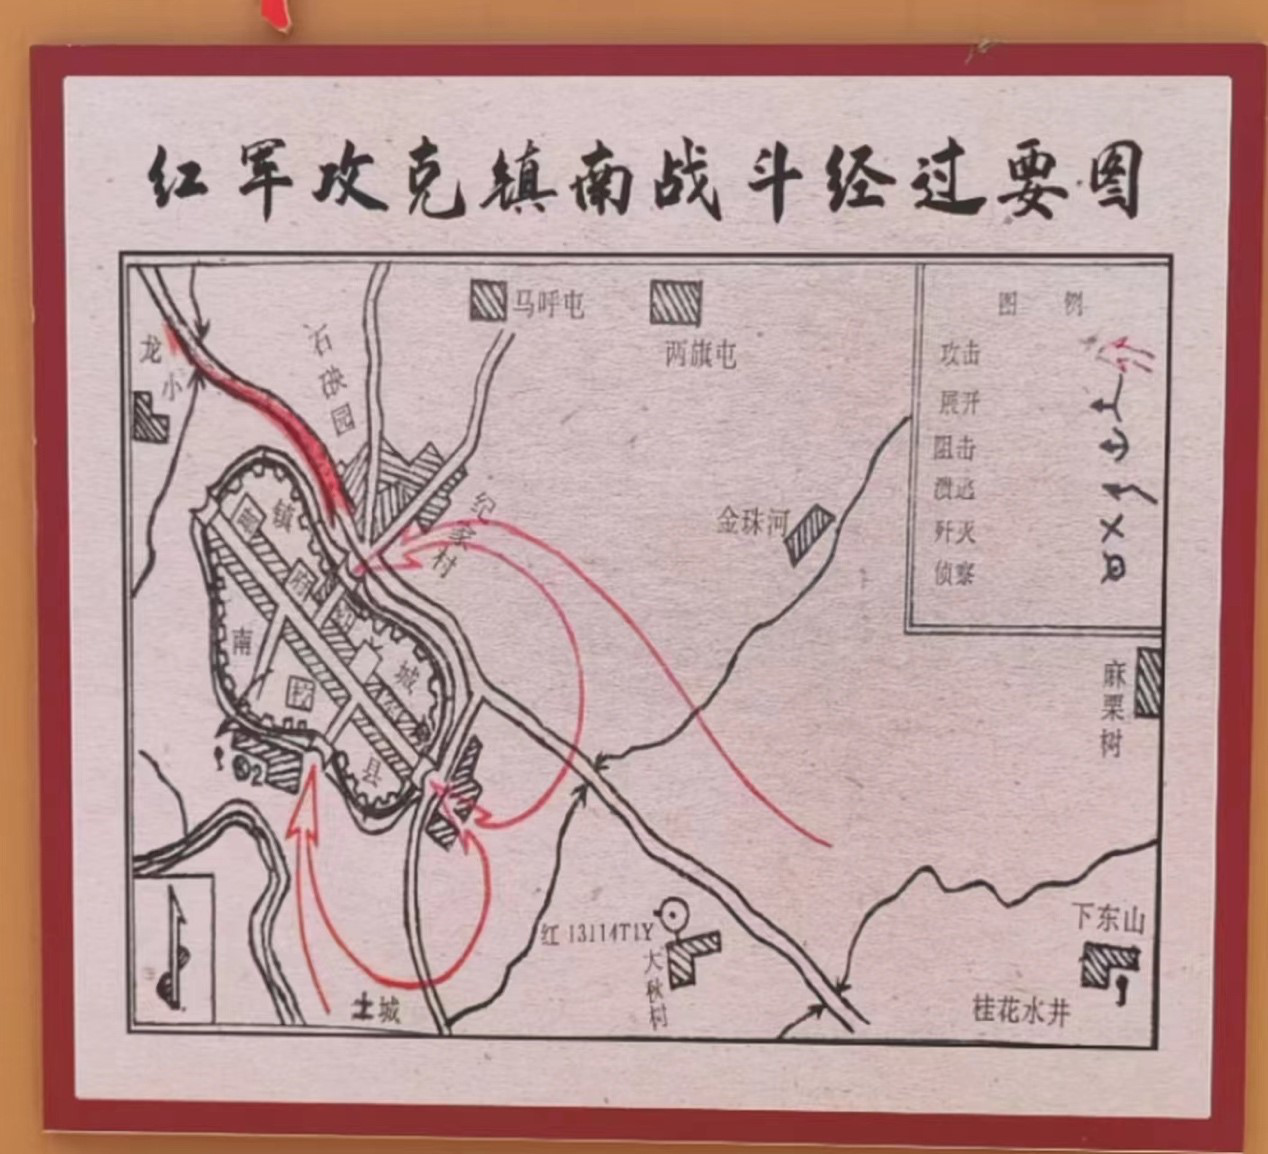 红军攻克镇南战斗经过要图
马呼屯
两旗屯
图 例
攻击
展开
阻击
溃逃
歼灭
侦察
龙
小
石
园
纪
家
村
金珠河
镇
南
城
县
麻
栗
树
红 13114T1Y
大
秋
树
下东山
土城
桂花水井